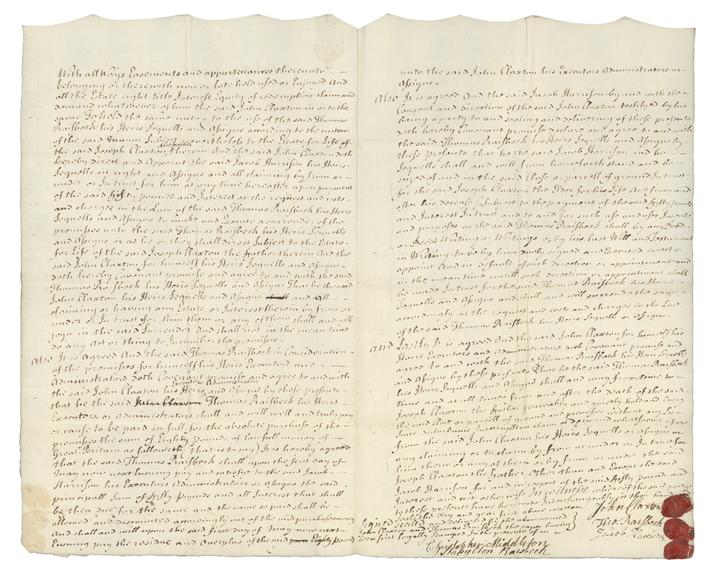 With all Ways Easements and appurtenances thereunto
belonging or therewith now or late held used or Enjoyed And
all the Estate right title Interest Equity of redemption claim and
demand whatsoever of him the said John Claxton in or to the
same To hold the same unto & to the use of the said Thomas
Raisbeck his Heirs Sequells and Assigns according to the custom
of the said Manor Subject nevertheless to the Estate for Life of
the said Joseph Claxton therein And the said John Claxton doth
hereby direct and Appoint the said Jacob Harrison his Heirs
Sequells in right and Assigns and all claiming by from or
under or In trust for him at any time hereafter upon payment
of the said fifty pounds and Interest at the request and costs
and charges in the Law of the said Thomas Raisbeck his Heirs
Sequells and Assigns to make and Execute surrender of the
premises unto the said Thomas Raisbeck his Heirs Sequells
and Assigns or as he or they shall direct Subject to the Estate
for Life of the said Joseph Claxton the Father therein And the
said John Claxton for himself his Heirs Sequells and Assigns
doth hereby covenant promise and agree to and with the said
Thomas Raisbeck his Heirs Sequells and Assigns That he the said
John Claxton his Heirs Sequells and Assigns and all
claiming or having any Estate or Interest therein by from or
under or In trust for him them or any of them shall and will
join in the said Surrender And shall not in the mean time
do any Act or thing to Incumber the premises
Also It is agreed And the said Thomas Raisbeck in Consideration
of the premises for himself his Heirs Executors and
Administrators doth Covenant promise and agree to and with
the said John Claxton his Executors Administrators and Assigns by these presents
that he the said Thomas Raisbeck his Heirs
Executors or Administrators shall and will well and truly pay
or cause to be paid in full for the absolute purchase of the
premises the sum of Eighty pounds of lawfull money of
Great Britain as followeth that is to say It is hereby agreed
that the said Thomas Raisbeck shall upon the first day of
May now next Ensuing pay and satisfie to the said Jacob
Harrison his Executors Administrators or Assigns the said
principall Sum of fifty pounds and all Interest that shall
be then due for the same and the same so paid shall be
allowed and discounted accordingly out of the said purchase money
And shall and will upon the said first day of May now next
Ensuing pay the residue and overplus of the said Eighty pound
unto the said John Claxton his Executors Administrators or
Assigns
Also It is agreed And the said Jacob Harrison by and with the
Consent and direction of the said John Claxton testifyed by his
being a party to and sealing and delivering of these presents
doth hereby Covenant promise declare and agree to and with
the said Thomas Raisbeck his Heirs Sequells and Assigns by
these presents that he the said Jacob Harrison and his
Sequells shall and will from henceforth stand and be
seized of and in the said Close or parcell of ground In trust
for the said Joseph Claxton the Elder for his Life And from and
after his decease subject to the payment of the said fifty pounds
and Interest In trust and to and for such use and uses Intents
and purposes as the said Thomas Raisbeck shall by any Deed
or Deeds Writing or Writings or by his last Will and Testament
in Writing to be by him duly made and Executed direct or
appoint And in default of such direction or appointment and
in the meantime until such direction or appointment shall
be made In trust for the said Thomas Raisbeck his Heirs
Sequells and Assigns and shall and will surrender the same
accordingly at the request and costs and charges in the Law
of the said Thomas Raisbeck his Heirs Sequells or Assigns
And Lastly It is agreed And the said John Claxton for himself his
Heirs Executors and Administrators doth Covenant promise and
agree to and with the said Thomas Raisbeck his Heirs Sequells
and Assigns by these presents That he the said Thomas Raisbeck
his Heirs Sequells and Assigns shall and may from time to
time and at all times from and after the death of the said
Joseph Claxton the Father peaceably and quietly hold and enjoy
the said premises without any
from the said John Claxton his Heirs Sequells or Assigns or
any claiming or to claim by from or under or In trust for
him them or any of them or by from or under the said
Joseph Claxton the Father Other than and Except the said
Jacob Harrison for and in respect of the said fifty pounds and
Interest and no otherwise In Witness whereof the said parties
to these presents have hereunto
the day and year first above written
Signed Sealed
John Claxton
Tho Raisbeck
Jacob Harrison
Christopher Middleton
Stapylton Raisbeck